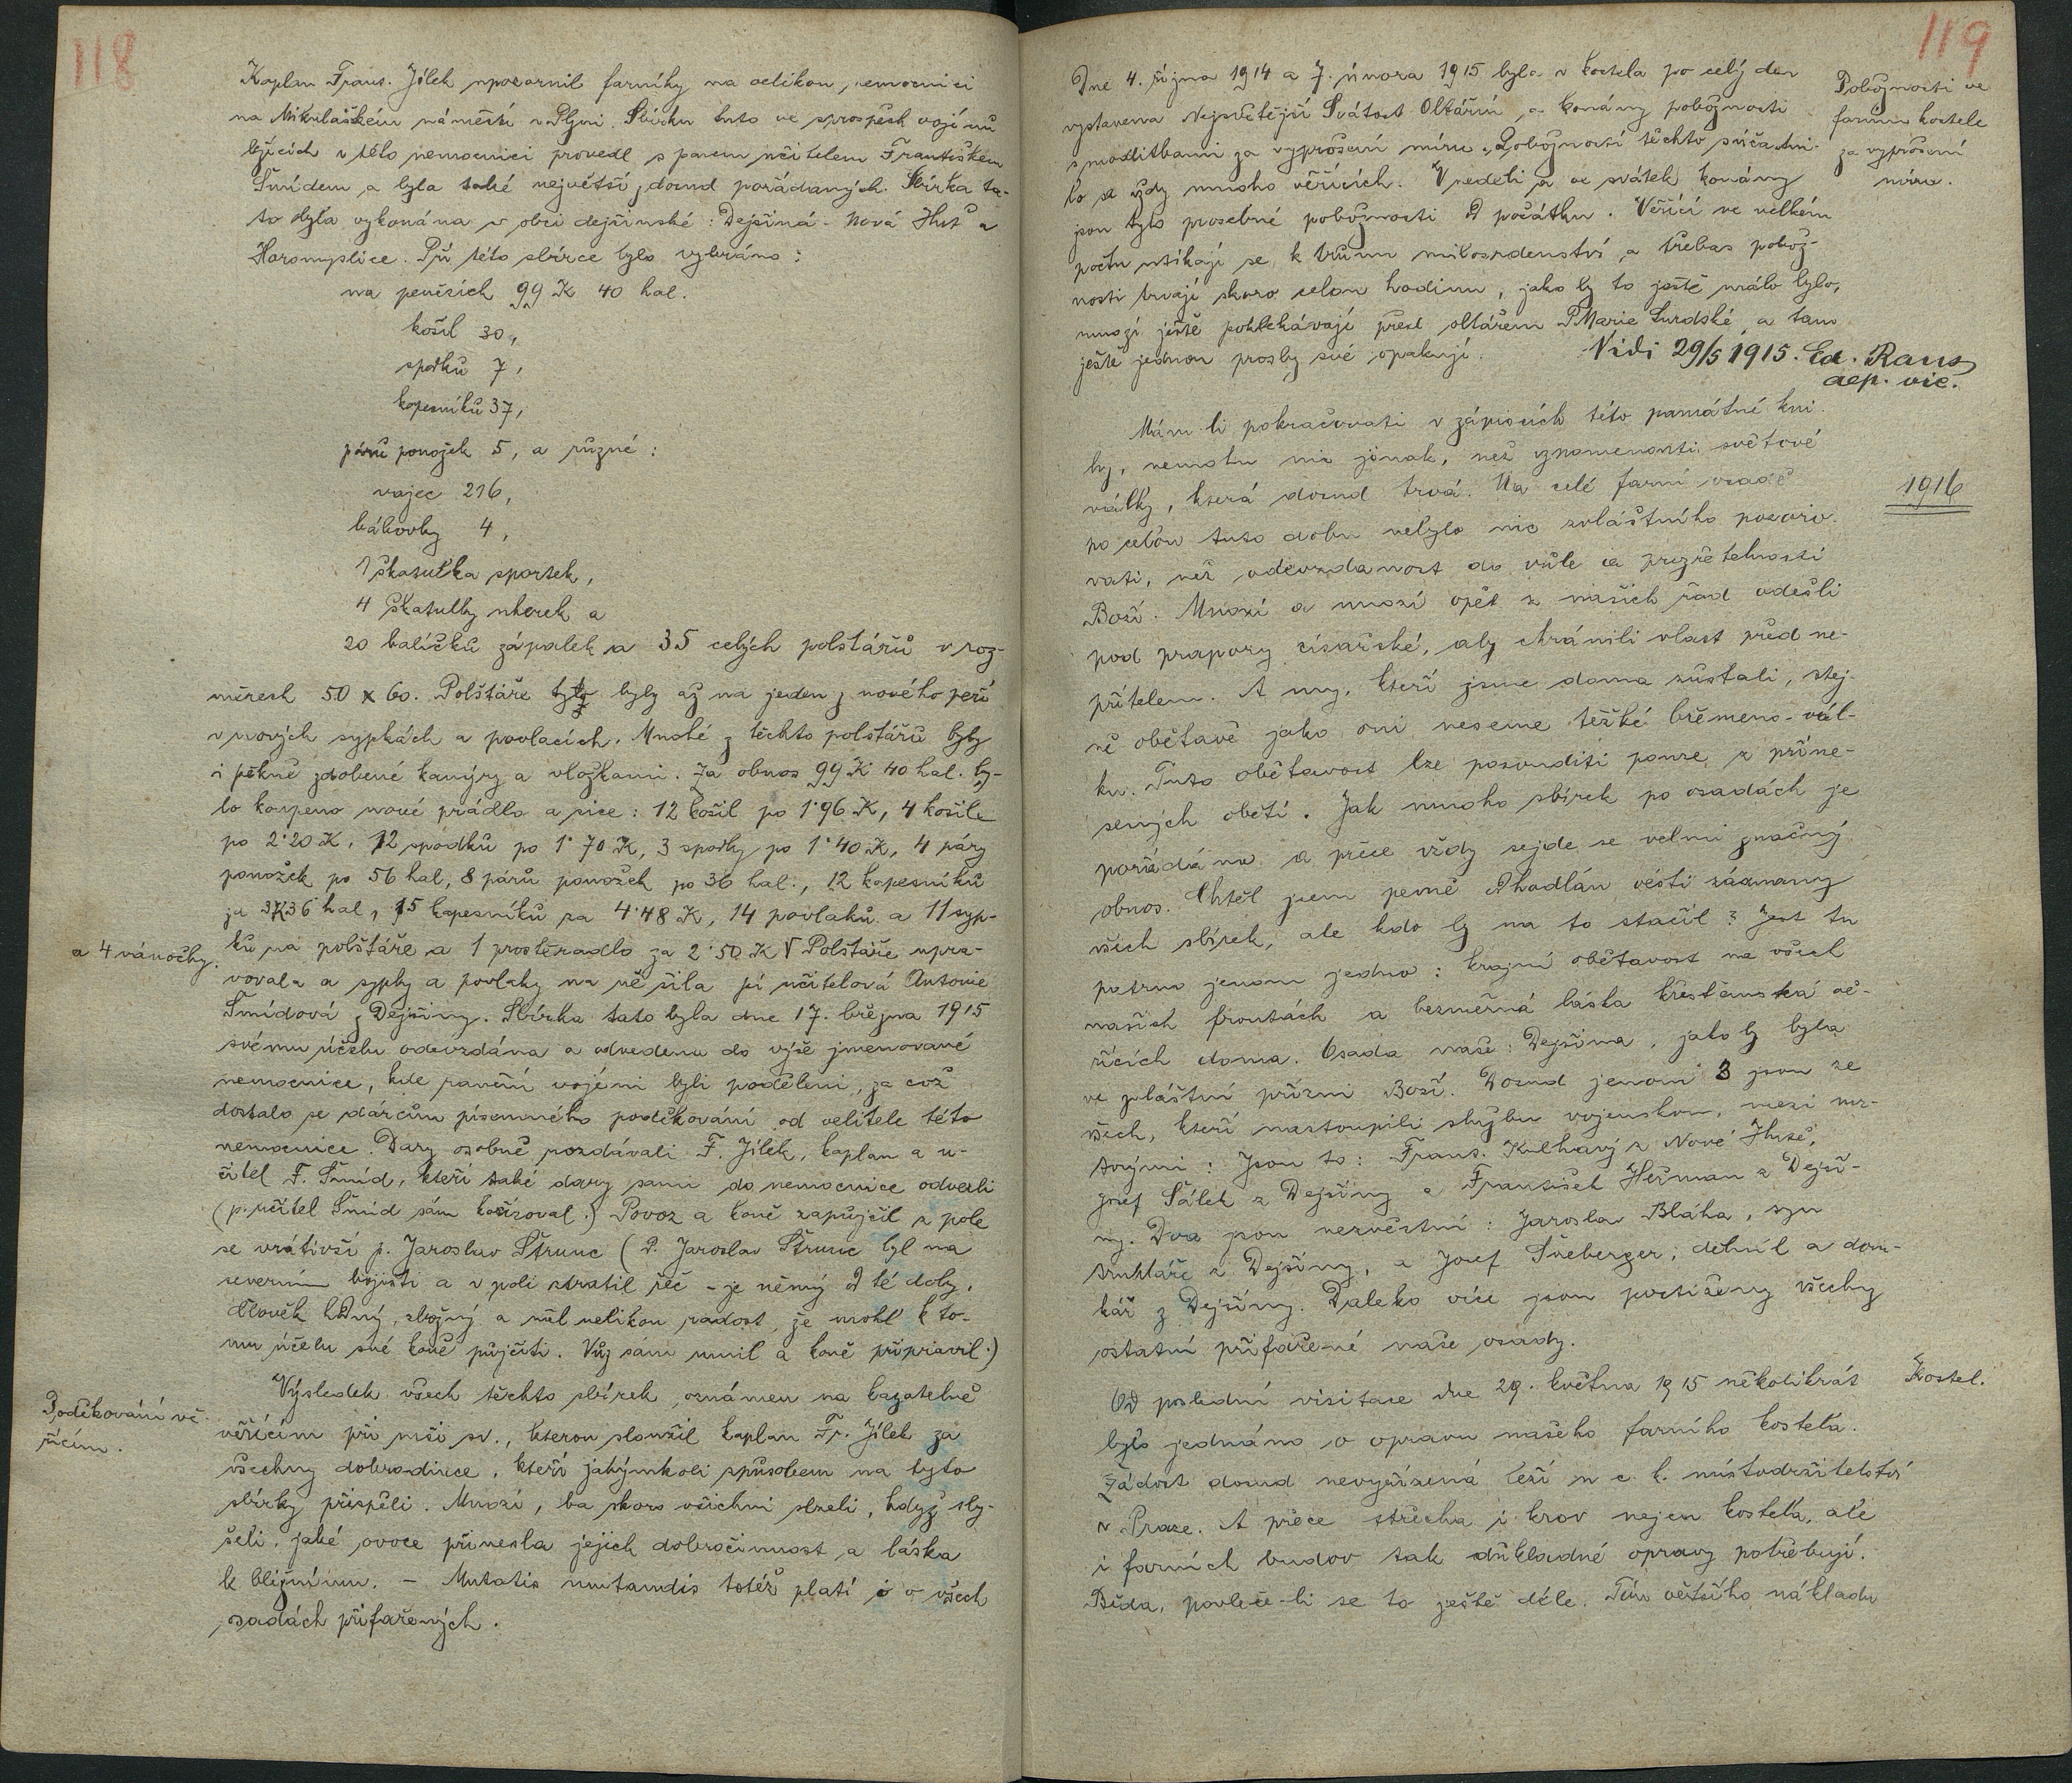 118
Kaplan Frant. Jílek upozornil farníky na velikou nemocnici
na Mikulášském náměstí v Plzni. Sbírku tuto ve prospěch vojínů
ležících v této nemocnici provedl s panem učitelem Františkem
Šmídem a byla také největší dosud pořádaných. Sbírka ta-
to byla vykonána v obci dejšinské: Dejšiná - Nová Huť a
Horomyslice. Při této sbírce bylo vybráno:
na penězích 99 K 40 hal.
košil 30,
spodků 7,
kapesníků 37,
párů ponožek 5, a různé:
vajec 216,
bábovky 4,
1 škatulka sportek,
4 škatulky uherek a
20 balíčků zápalek a 35 celých polštářů v roz-
měrech 50 x 60. Polštáře tyto byly až na jeden z nového peří
v nových sypkách a povlacích. Mnohé z těchto polštářů byly
i pěkně zdobené kanýry a vložkami. Za obnos 99 K 40 hal. by-
lo koupeno nové prádlo a sice: 12 košil po 1·96 K, 4 košile
po 2·20 K, 12 spodků po 1·70 K, 3 spodky po 1·40 K, 4 páry
ponožek po 56 hal, 8 párů ponožek po 36 hal., 12 kapesníků
za 3K36 hal, 15 kapesníků za 4·48 K, 14 povlaků a 11 syp-
a 4 vánočky.
ků na polštáře a 1 prostěradlo za 2·50 K V Polštáře upra-
vovala a sypky a povlaky na ně šila pí učitelová Antonie
Šmídová z Dejšiny. Sbírka tato byla dne 17. března 1915
svému účelu odevzdána a odvedena do výše jmenované
nemocnice, kde ranění vojíni byli poděleni, za což
dostalo se dárcům písemného poděkování od velitele této
nemocnice. Dary osobně rozdávali F. Jílek, kaplan a u-
čitel F. Šmíd, kteří také dary sami do nemocnice odvezli
(p. učitel Šmíd sám kočíroval.) Povoz a koně zapůjčil z pole
se vrátivší p. Jaroslav Štrunc (P. Jaroslav Štrunc byl na
severním bojišti a v poli ztratil řeč - je němý od té doby,
člověk hodný, zbožný a měl velikou radost, že mohl k to-
mu účelu své koně půjčiti. Vůz sám umil a koně připravil.)
Výsledek všech těchto sbírek oznámen na kazatelně
Poděkování vě-
řícím.
věřícím při mši sv., kterou sloužil kaplan Fr. Jílek za
všechny dobrodince, kteří jakýmkoli způsobem na tyto
sbírky přispěli. Mnozí, ba skoro všichni slzeli, když sly-
šeli, jaké ovoce přinesla jejich dobročinnost a láska
k bližnímu. - Mutatis mutandis totéž platí i o všech
osadách přifařených.
119
Dne 4. října 1914 a 7. února 1915 byla v kostela po celý den
vystavena Nejsvětější Svátost Oltářní, a konány pobožnosti
s modlitbami za vyprošení míru. Pobožností těchto súčastni-
lo se vždy mnoho věřících. V neděli a ve svátek konány
jsou tyto prosebné pobožnosti od počátku. Věřící ve velkém
počtu utíkají se k trůnu milosrdenství, a třebas pobož-
nosti trvají skoro celou hodinu, jako by to ještě málo bylo,
mnozí ještě poklekávají před oltářem P Marie Lurdské, a tam
ještě jednou prosby své opakují.
Pobožnosti ve
farním kostele
za vyprošení
míru.
Vidi 29/5 1915. Ed. Raus
aep. vic.
Mám-li pokračovati v zápisích této památné kni-
hy, nemohu nic jinak, než vzpomenouti světové
války, která dosud trvá. Na celé farní osadě
1916
po celou tuto dobu nebylo nic zvláštního pozoro-
vati, než odevzdanost do vůle a prozřetelnosti
Boží. Mnozí a mnozí opět z našich řad odešli
pod prapory císařské, aby chránili vlast před ne-
přítelem. A my, kteří jsme doma zůstali, stej-
ně obětavě jako oni neseme těžké břemeno-vál-
ku. Tuto obětavost lze posouditi pouze z přine-
sených obětí. Jak mnoho sbírek po osadách je
pořádáno a přece vždy sejde se velmi značný
obnos. Chtěl jsem pevně odhodlán vésti záznamy
všech sbírek, ale kdo by na to stačil? Jest tu
patrno jenom jedno: krajní obětavost na všech
našich frontách a bezměrná láska křesťanská vě-
řících doma. Osada naše: Dejšina, jako by byla
ve zvláštní přízni Boží. Dosud jenom 3 jsou ze
všech, kteří nastoupili službu vojenskou, mezi mr-
tvými: Jsou to: Frant. Kulhavý z Nové Hutě,
Josef Šálek z Dejšiny a František Heřman z Dejši-
ny. Dva jsou nezvěstni: Jaroslav Bláha, syn
truhláře z Dejšiny, a Josef Šneberger, dělník a dom-
kář z Dejšiny. Daleko více jsou postiženy všechny
ostatní přifařené naše osady.
Od poslední visitace dne 29. května 1915 několikrát
Kostel.
bylo jednáno o opravu našeho farního kostela.
Žádost dosud nevyřízená leží u c. k. místodržitelství
v Praze. A přece střecha i krov nejen kostela, ale
i farních budov tak důkladné opravy potřebují.
Běda, povleče-li se to ještě déle. Tím většího nákladu